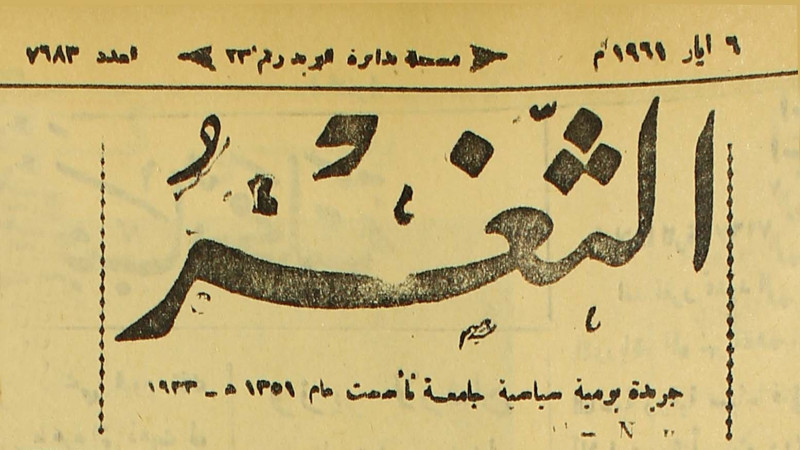 ٦ ايار ١٩٦١ م مسجلة بدائرة البريد رقم ٢٣ العدد ٧٦٨٣
الثَّغْرُ
جريدة يومية سياسية جامعة تأسست عام ١٣٥١ هـ - ١٩٣٣